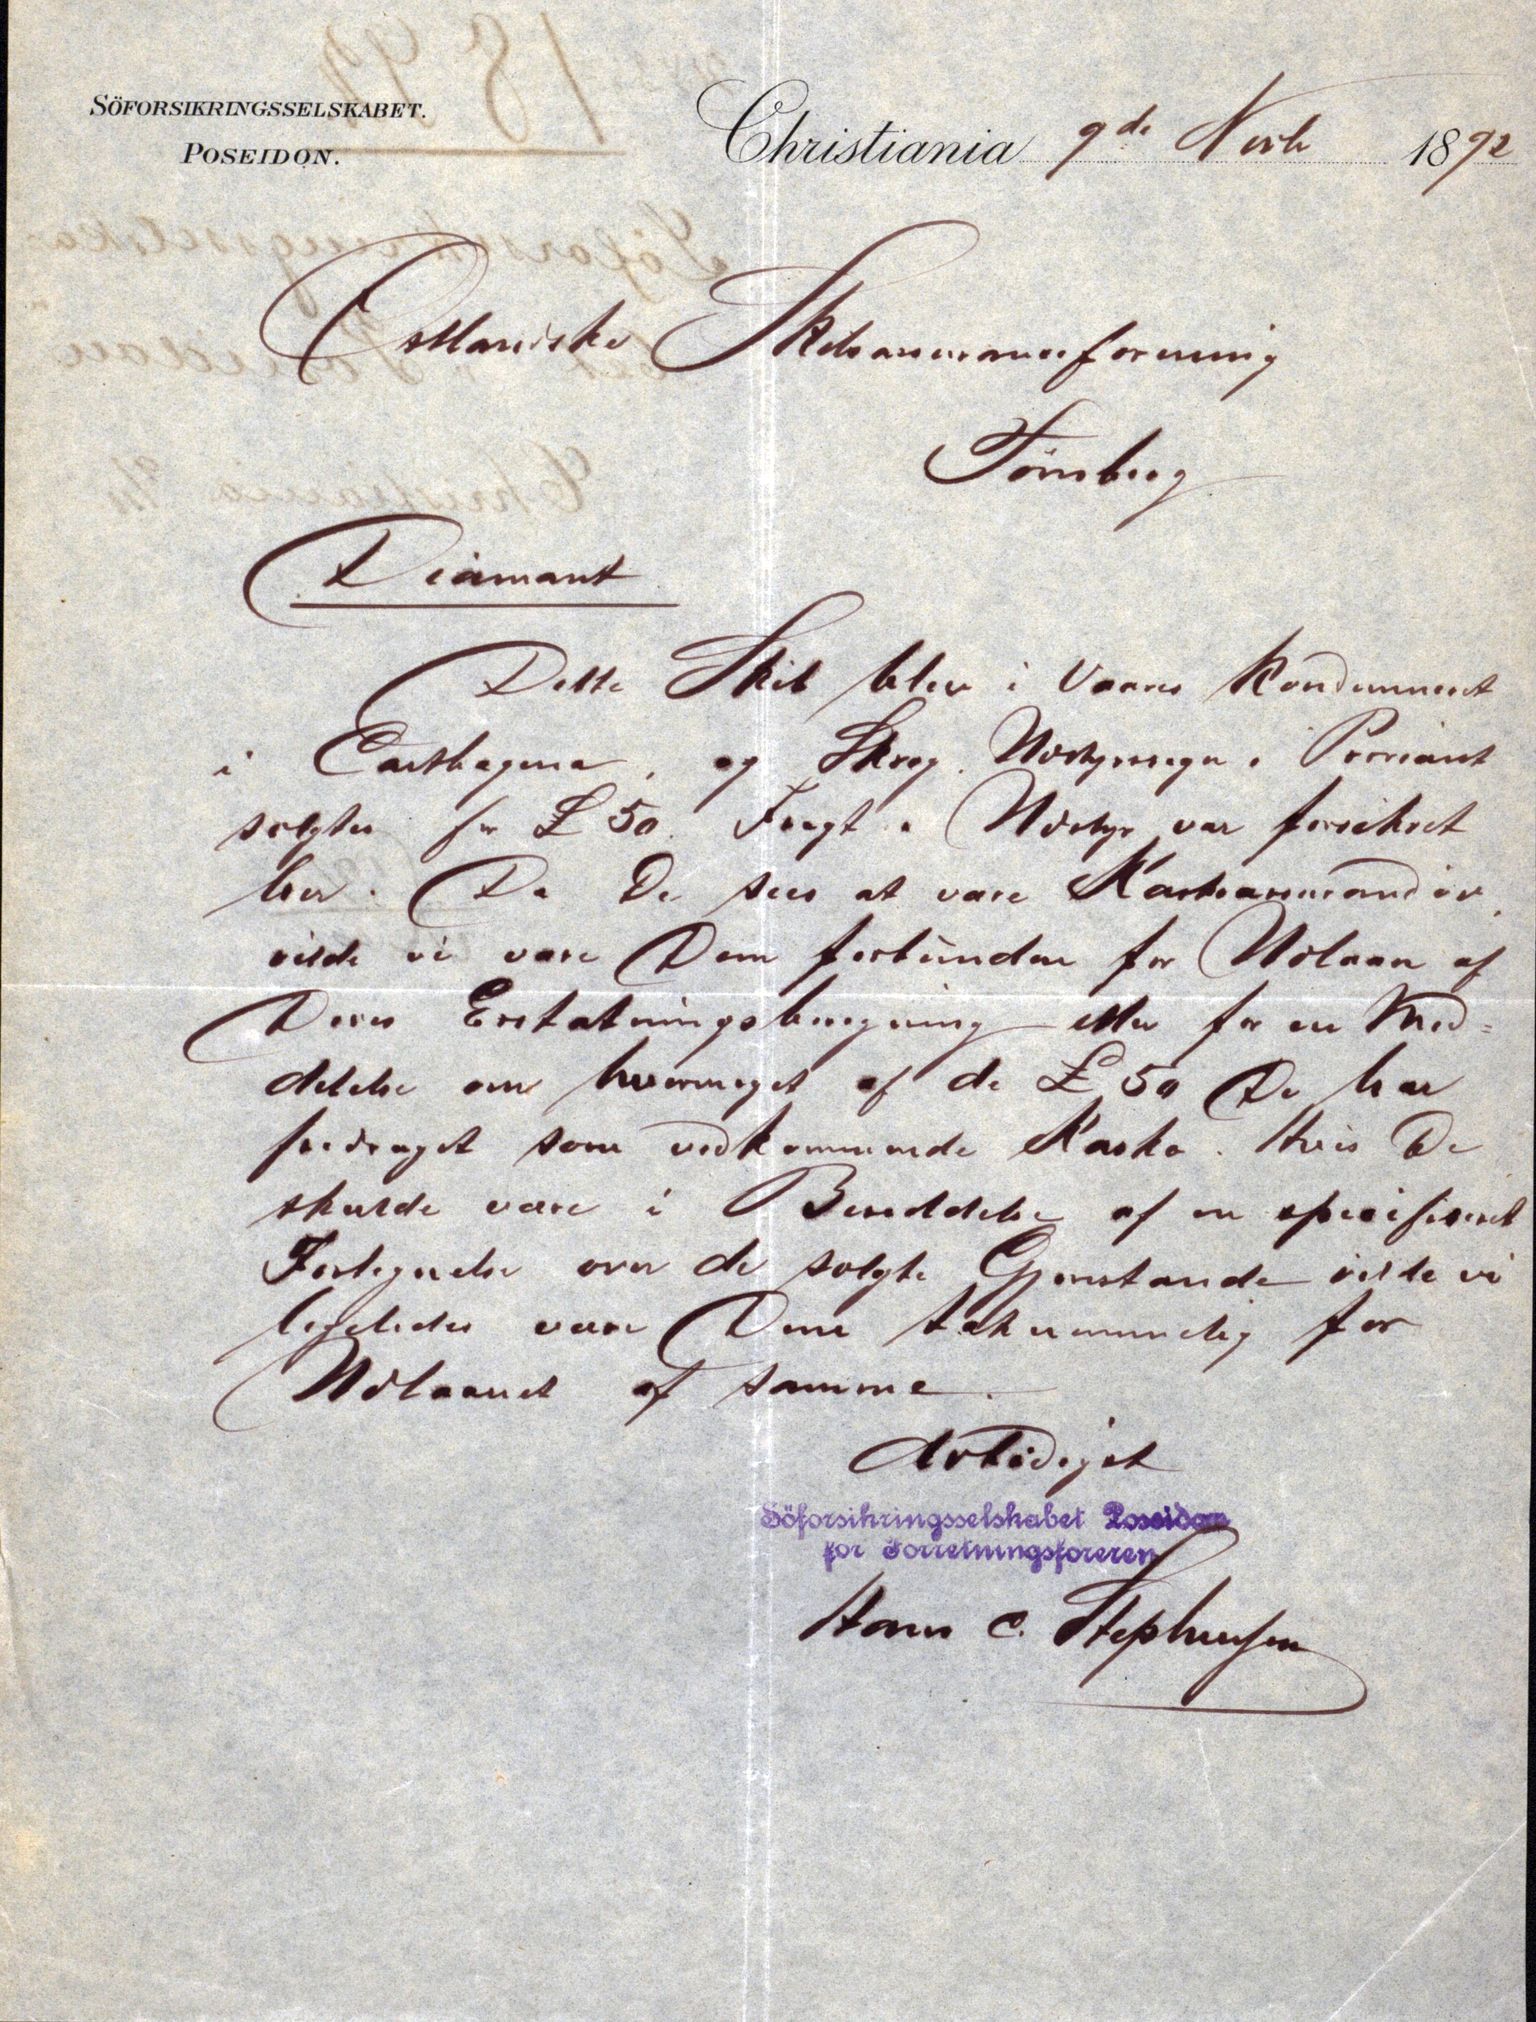 SÖFORSIKRINGSSELSKABET.
POSEIDON.
Christiania 9de Novb 1892
Østlandske Skibsassuranceforening
Tønsberg
Diamant
Dette Skib blev i Vaares Kondemneret
i Carthagena, og Skrog, Udstyrsvegn. Proviant
solgtes for £ 50. Fragt & Udstyr var forsikret
her. Da De sees at være Kaskoassurandør,
vilde vi være Dem forbunden for Udlaan af
Deres Erstatningsberegning eller for en Med=
delelse om hvormeget af de £ 50 De har
fradraget som vedkommende Kasko. Hvis De
skulde være i Besiddelse af en specificeret
Fortegnelse over de solgte Gjenstande vilde vi
ligeledes være Dem taknemmelig for
Udlaanet af samme.
Ærbødigst
Söforsikringsselskabet Poseidon
for Forretningsföreren
Hans C. Stephensen